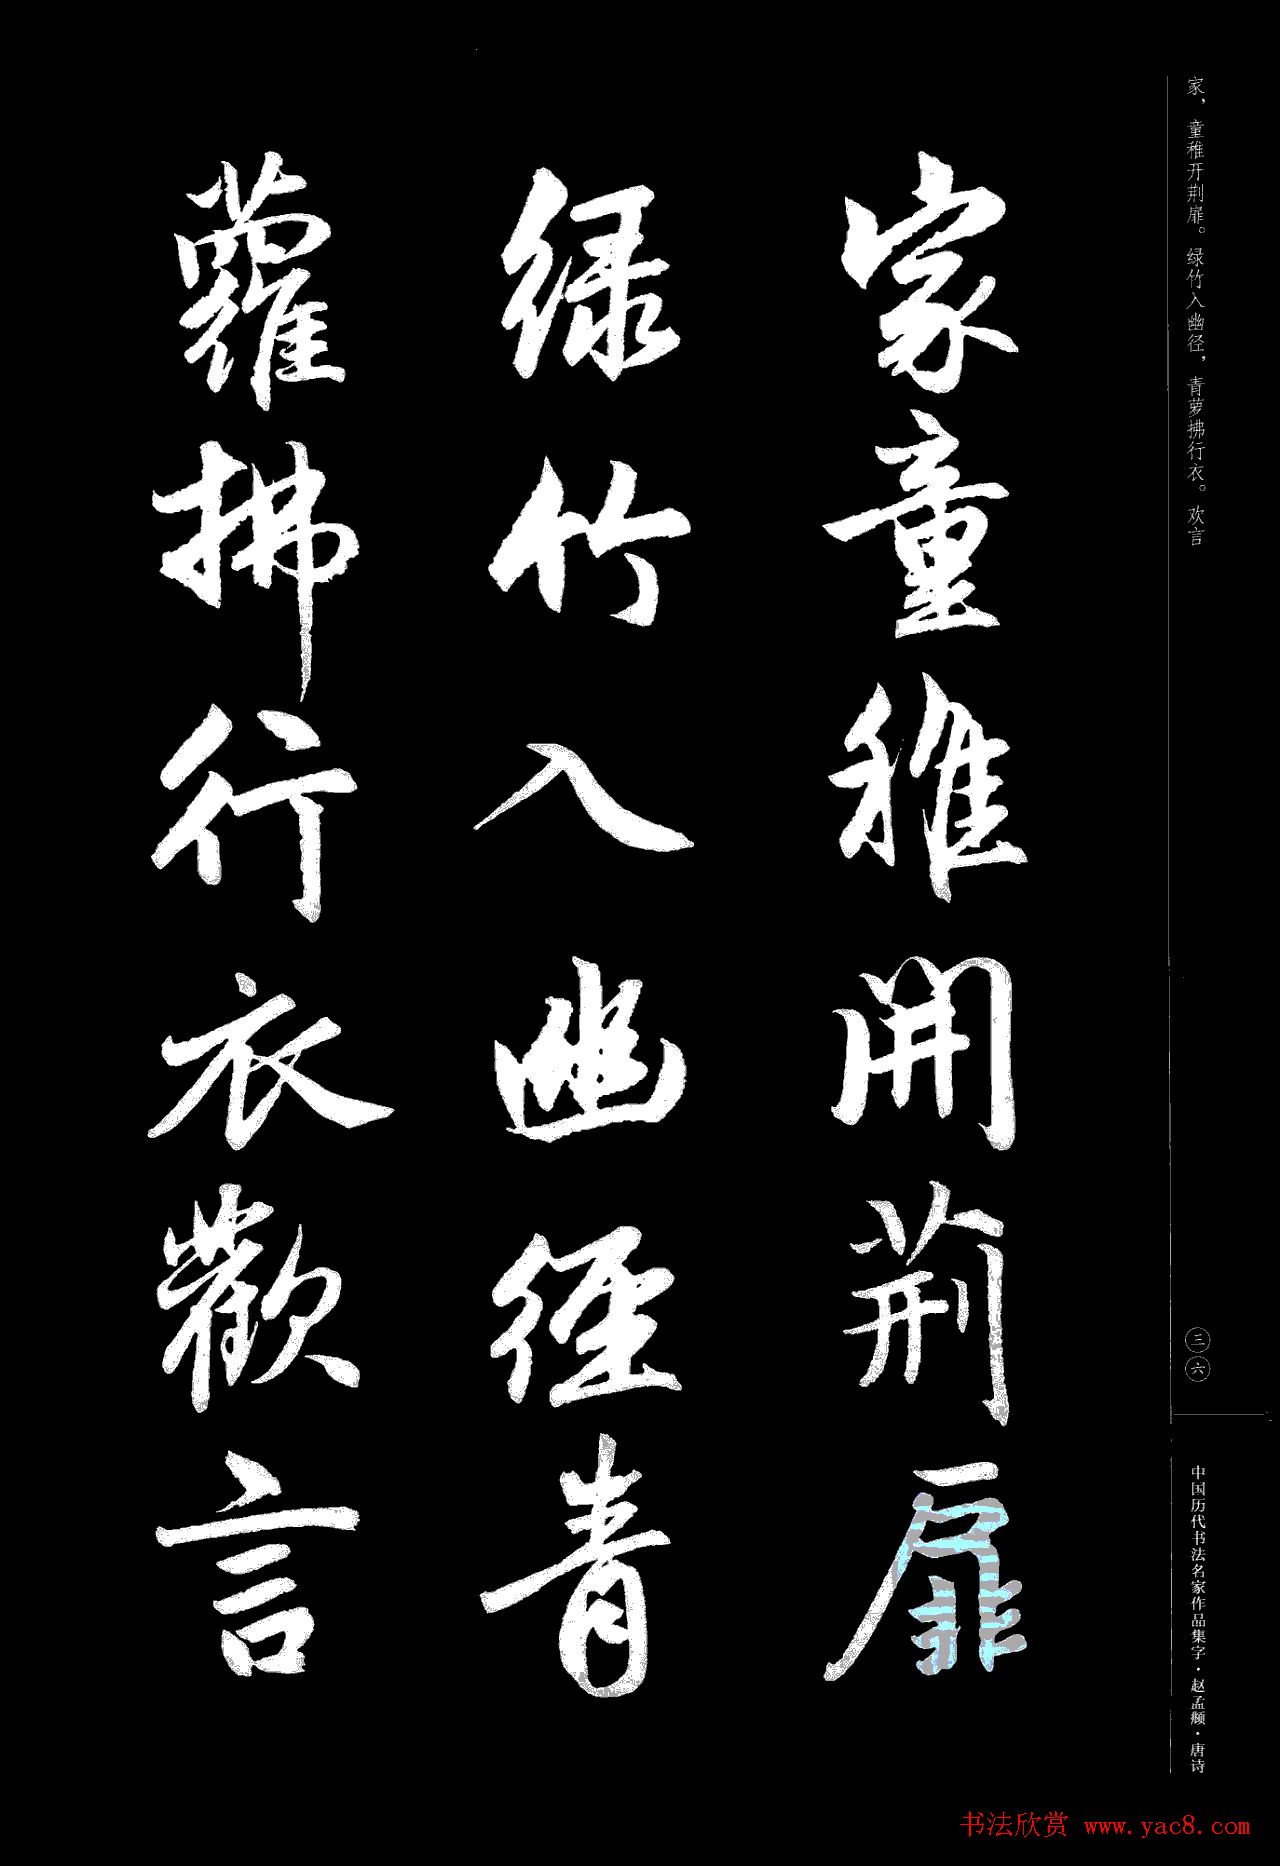 家，童稚开荆扉。绿竹入幽径，青萝拂行衣。欢言
家童稚開荆扉
緑竹入幽徑青
蘿拂行衣歡言
三六
中国历代书法名家作品集字·赵孟頫·唐诗
书法欣赏 www.yac8.com